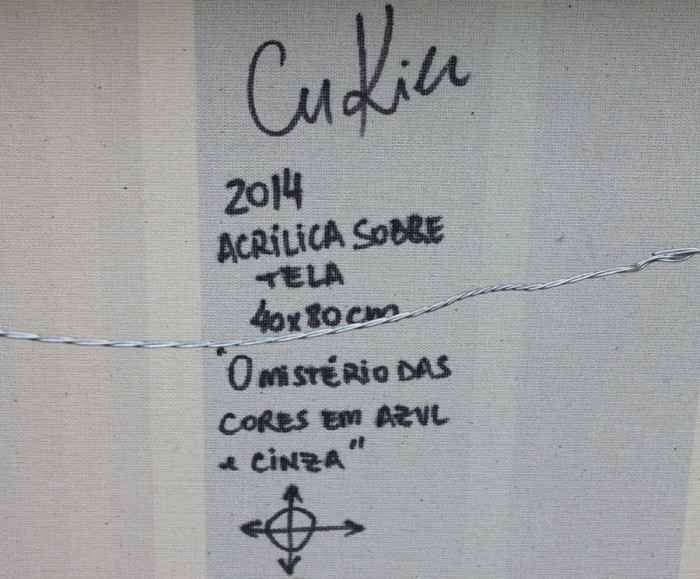 Cukier
2014
ACRÍLICA SOBRE
TELA
40x80cm
"O MISTÉRIO DAS
CORES EM AZUL
e CINZA"